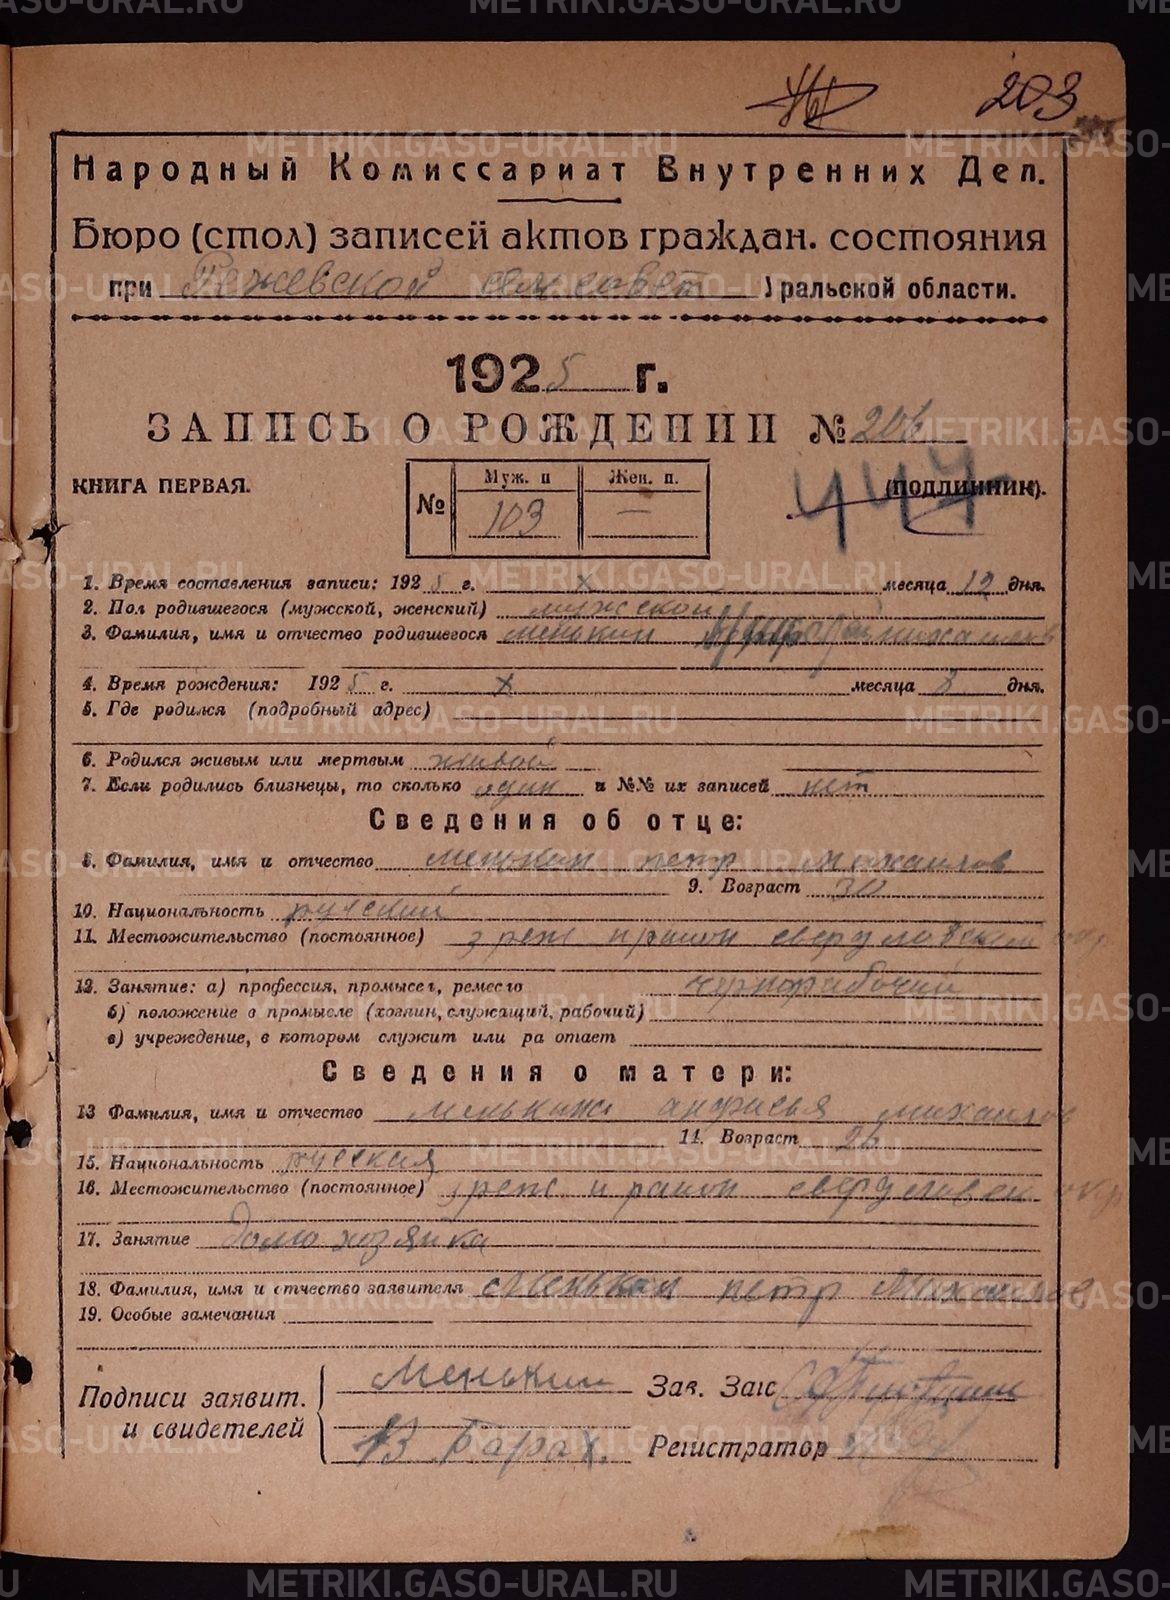 203
Народный Комиссариат Внутренних Дел.
Бюро (стол) записей актов граждан. состояния
при Режевской сельсовет Уральской области.
1925 г.
ЗАПИСЬ О РОЖДЕНИИ № 206
КНИГА ПЕРВАЯ.
(ПОДЛИННИК).
447
№ Муж. п Жен. п.
103 —
1. Время составления записи: 1925 г. X месяца 12 дня.
2. Пол родившегося (мужской, женский) мужской
3. Фамилия, имя и отчество родившегося Менькин
4. Время рождения: 1925 г. X месяца 8 дня.
5. Где родился (подробный адрес)
6. Родился живым или мертвым живой
7. Если родились близнецы, то сколько один и №№ их записей нет
Сведения об отце:
8. Фамилия, имя и отчество Менькин петр михаилов
9. Возраст 30
10. Национальность русский
11. Местожительство (постоянное) з реж и район свердловском
12. Занятие: а) профессия, промысел, ремесло чернорабочий
б) положение в промысле (хозяин, служащий, рабочий)
в) учреждение, в котором служит или ра отает
Сведения о матери:
13 Фамилия, имя и отчество Менькина анфисья михаилов
14. Возраст 26
15. Национальность русская
16. Местожительство (постоянное) з реж и район свердловск окр
17. Занятие домохозяйка
18. Фамилия, имя и отчество заявителя Менькин петр Михаилов
19. Особые замечания
Подписи заявит. и свидетелей
Менькин
Зав. Загс
Регистратор
METRIKI.GASO-URAL.RU